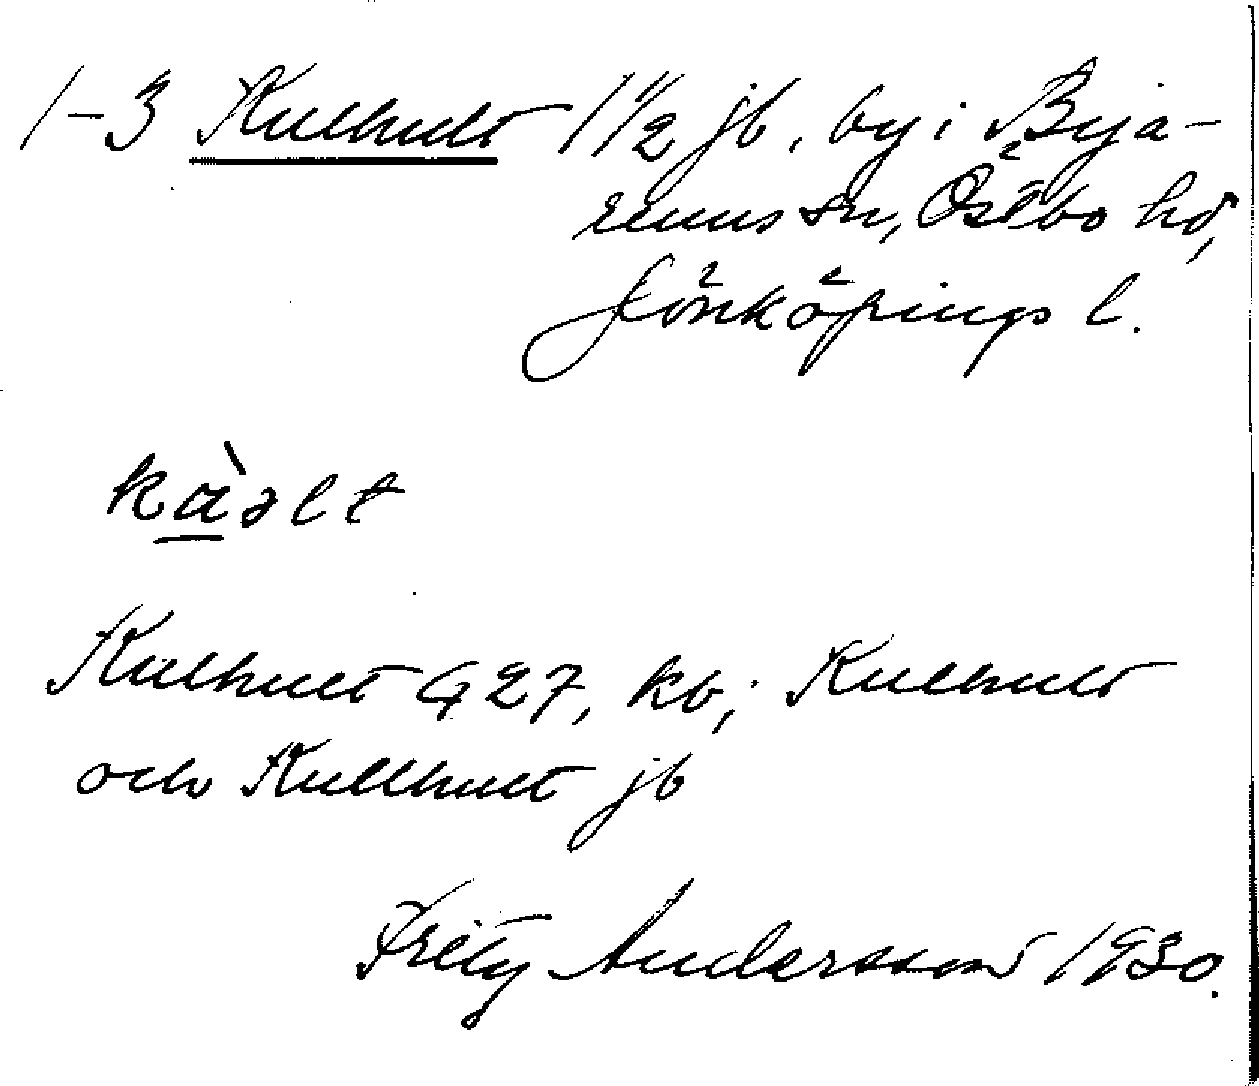 1-3 Kulhult 1 1/2 jb. by i Bya-
rums sn, Östbo hd,
Jönköpings l.
kàəlt
Kulhult G 27, kb; Kulhult
och Kullhult jb
Fritz Andersson 1930.